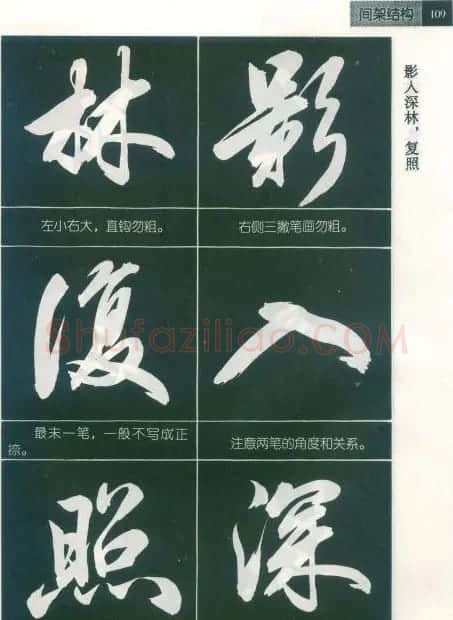 间架结构 109
影入深林，复照
影
右侧三撇笔画勿粗。
入
注意两笔的角度和关系。
深
林
左小右大，直钩勿粗。
復
最末一笔，一般不写成正
捺。
照
Shufaziliao.COM